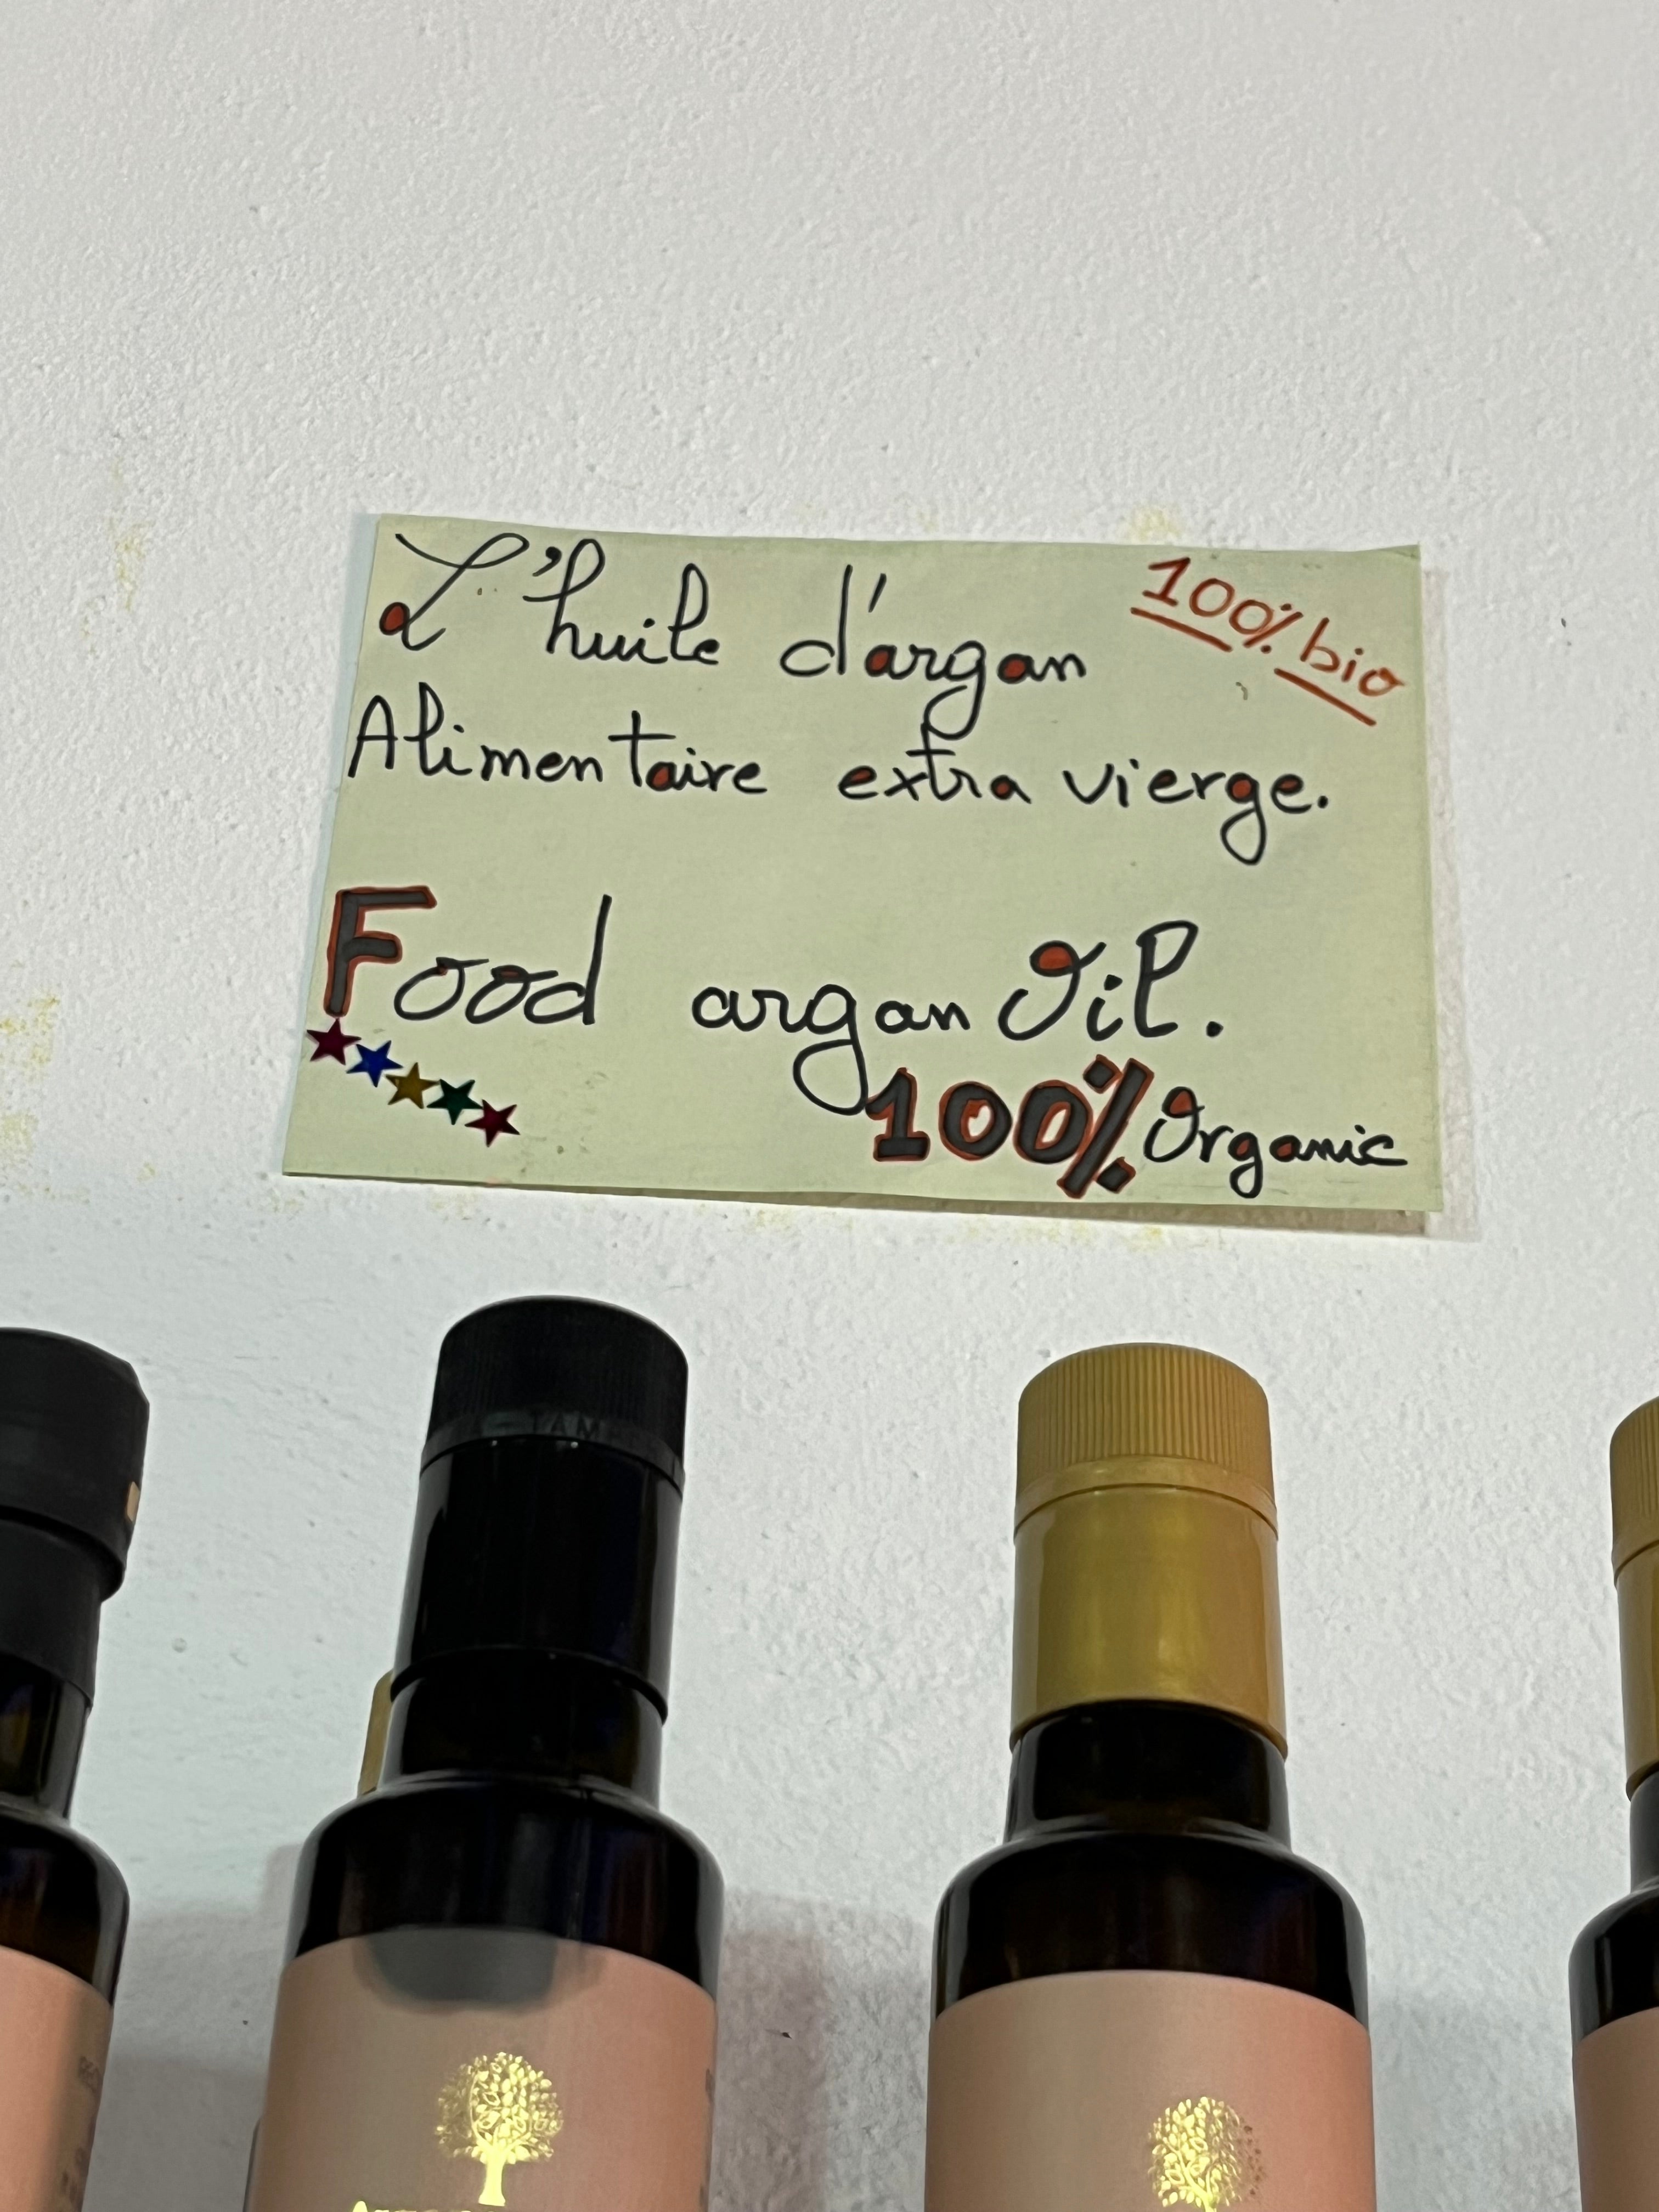 L'huile d'argan
100% bio
Alimentaire extra vierge.
Food argan Oil.
100% Organic